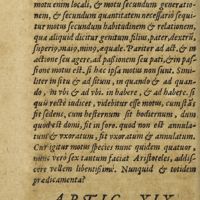 motu enim locali, & motu secundum generatio-
nem, & secundum quantitatem necessario sequi-
tur motus secundum habitudinem & relationem,
qua aliquid dicitur genitum filius, pater, dextrũ,
superio, maio, mino, æquale. Pariter ad act. & in
actione seu agere, ad passionem seu pati, & in pas-
sione motus est, si hæc ipsa motus non sunt. Simi-
liter in situ & ad situm, in quando & ad quan-
do, in vbi & ad vbi, in habere, & ad habere, si
quis recte iudicet, videbitur esse motus, cum stãs
fit sedens, cum hesternum fit hodiernum, dum
quod est domi, fit in foro, quod non est annula-
tum & vxoratum, fit vxoratum & annulatum.
Cur igitur motus species nunc quidem quatuor,
nunc vero sex tantum faciat Aristoteles, addis-
cere vellem libentissime. Nunquid & totidem
prædicamenta?
ARTIC. XLV.